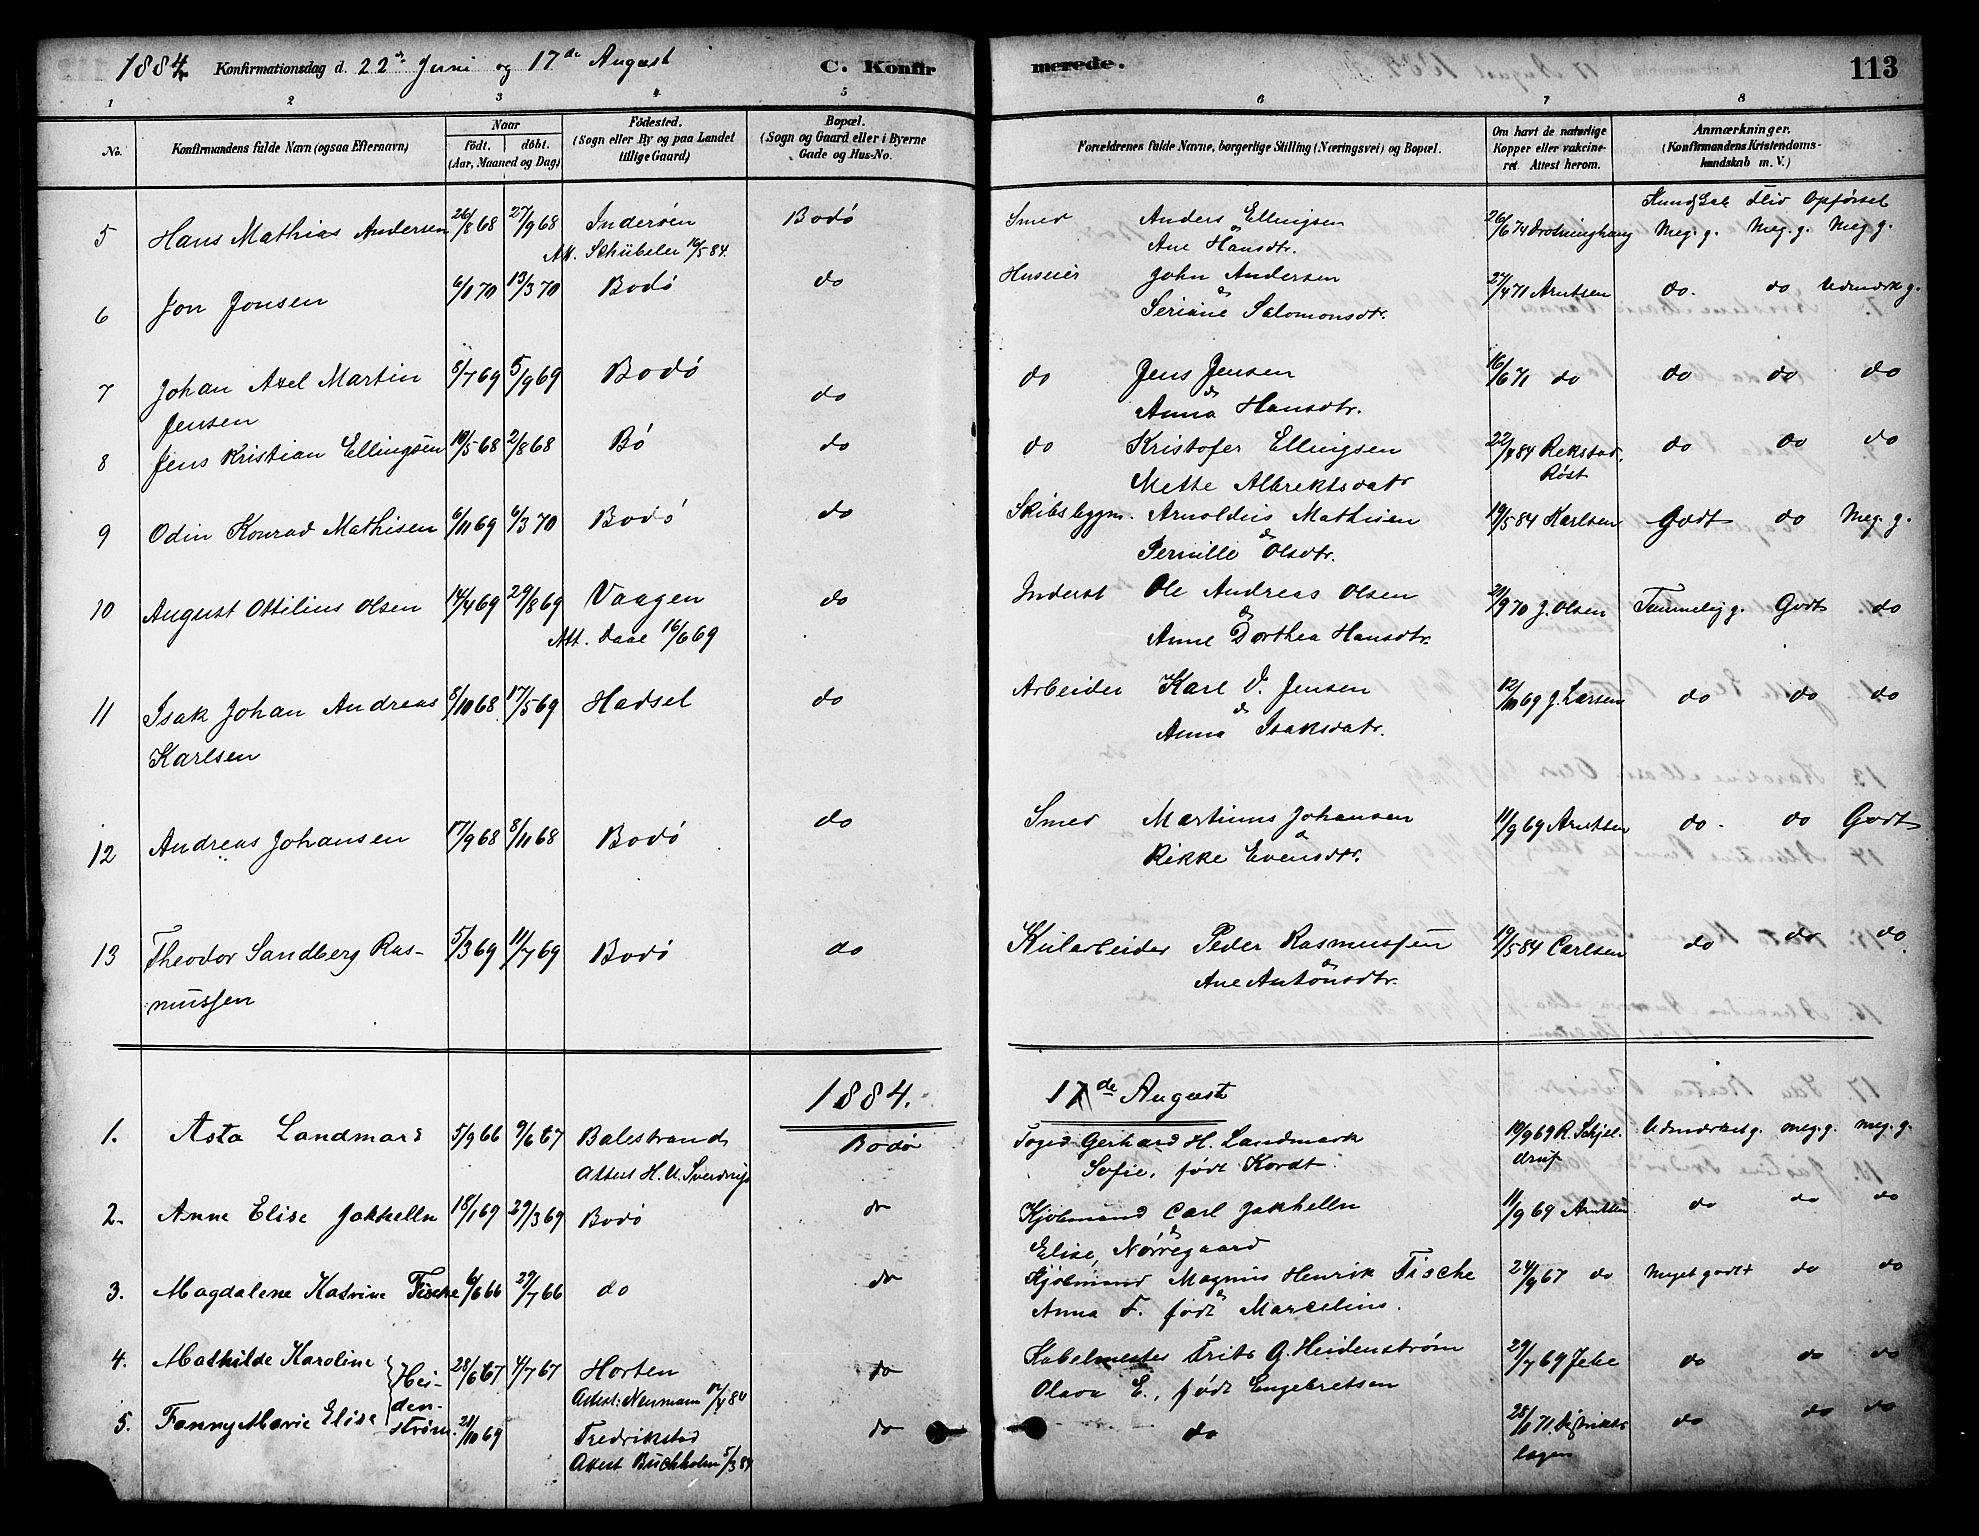 1884 Konfirmationsdag d. 22de Juni og 17de August C. Konfirmerede. 113
1 2 3 4 5 6 7 8
No. Konfirmandens fulde Navn (ogsaa Efternavn) Naar født. døbt. (Aar, Maaned og Dag) Fødested. (Sogn eller By og paa Landet tillige Gaard) Bopæl. (Sogn og Gaard eller i Byerne Gade og Hus-No. Forældrenes fulde Navne, borgerlige Stilling (Næringsvei) og Bopæl. Om havt de naturlige Kopper eller vakcineret. Attest herom. Anmærkninger. (Konfirmandens Kristendomskundskab m. V.)
Kundskab Flid Opførsel
5 Hans Mathias Andersen 26/8 68 27/9 68 Inderøen Bodø Smed Anders Ellingsen 26/6 74 Drotninghaug Meg. g. Meg. g. Meg g.
Att. Schübeler 16/5 84. & Ane Hansdtr.
6 Jon Jonsen 6/1 70 13/3 70 Bodø do Huseier John Andersen 27/4 71 Arntsen do. do Udmærk g.
& Seriane Salomonsdtr.
7 Johan Axel Martin 8/7 69 5/9 69 Bodø do do Jens Jensen 16/6 71 do do do do
Jensen & Anna Hansdtr.
8 Jens Kristian Ellingsen 10/5 68 2/8 68 Bø do do Kristofer Ellingsen 22/4 84 Rekstad, do do do
Mette Albrektsdatr Røst
9 Odin Konrad Mathisen 6/11 69 6/3 70 Bodø do Skibsbygm. Arnoldus Mathisen 19/5 84 Karlsen Godt do Meg. g.
& Pernille Olsdtr.
10 August Ottilius Olsen 14/4 69 29/8 69 Vaagen do Inderst Ole Andreas Olsen 20/9 70 J. Olsen Temmelig g. Godt do
Att. Daae 16/6 69 & Anne Dorthea Hansdtr.
11 Isak Johan Andreas 8/10 68 17/5 69 Hadsel do Arbeider Karl J. Jensen 12/10 69 J. Larsen do do do
Karlsen & Anna Isaksdatr.
12 Andreas Johansen 17/9 68 8/11 68 Bodø do Smed Martinus Johansen 11/9 69 Arntsen do. do Godt
& Rikke Evensdtr.
13 Theodor Sandberg Ras- 5/3 69 11/7 69 Bodø do Kularbeider Peder Rasmussen 19/5 84 Carlsen do do do
mussen & Ane Antonsdtr.
1884. 17de August
1. Asta Landmark 5/9 66 9/6 67 Balestrand Bodø Foged Gerhard H. Landmark 10/9 69 R. Schjel- Udmærket g. meg. g. meg. g.
Attest H. U. Sverdrup Sofie, født Kordt. drup
2. Anne Elise Jakhelln 18/1 69 29/3 69 Bodø do Kjøbmand Carl Jakhelln 11/9 69 Arntsen do do do
& Elise, Nørregaard
3. Magdalene Katrine Fische 6/6 66 29/7 66 do do Kjøbmand Magnus Henrik Fische 24/9 67 do Meget godt do do
& Anna F. født Marcelius.
4. Mathilde Karoline Hei- 28/6 67 4/7 67 Horten do Kabelmester Frits G. Heidenstrøm 29/7 69 do do do
den- Attest: Neumann 17/4 84 Olava E., født Engebretsen
5. Fanny Marie Elise strøm. 21/10 69 Fredrikstad do do 28/1 71. Distrikts- do do do
Attest Buchholm 5/3 84 lægen